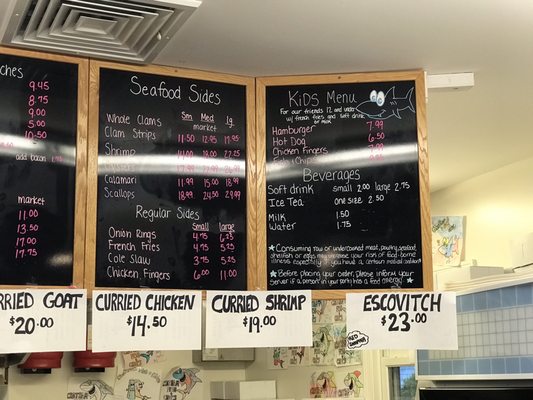 ches
9.45
8.75
9.00
5.00
10.50
add bacon
market
11.00
13.50
17.00
17.75
Seafood Sides
Sm Med Lg
Whole Clams market
Clam Strips 11.50 12.95 17.95
Shrimp
Calamari 11.99 15.00 18.99
Scallops 18.99 24.50 29.99
Regular Sides
small large
Onion Rings 4.75 6.25
French Fries 4.75 5.25
Cole Slaw 3.75 5.25
Chicken Fingers 6.00 11.00
Kids Menu
For our friends 12 and under
w/ french fries and soft drink
or milk
Hamburger 7.99
Hot Dog 6.50
Chicken Fingers 7.99
Fish & Chips
Beverages
Soft drink small 2.00 large 2.75
Ice Tea one size 2.50
Milk 1.50
Water 1.75
*Consuming raw or undercooked meat, poultry, seafood,
shellfish or eggs may increase your risk of food-borne
illness, especially if you have a certain medical condition
*Before placing your order, please inform your
server if a person in your party has a food allergy.
RRIED GOAT
$20.00
CURRIED CHICKEN
$14.50
CURRIED SHRIMP
$19.00
ESCOVITCH
$23.00